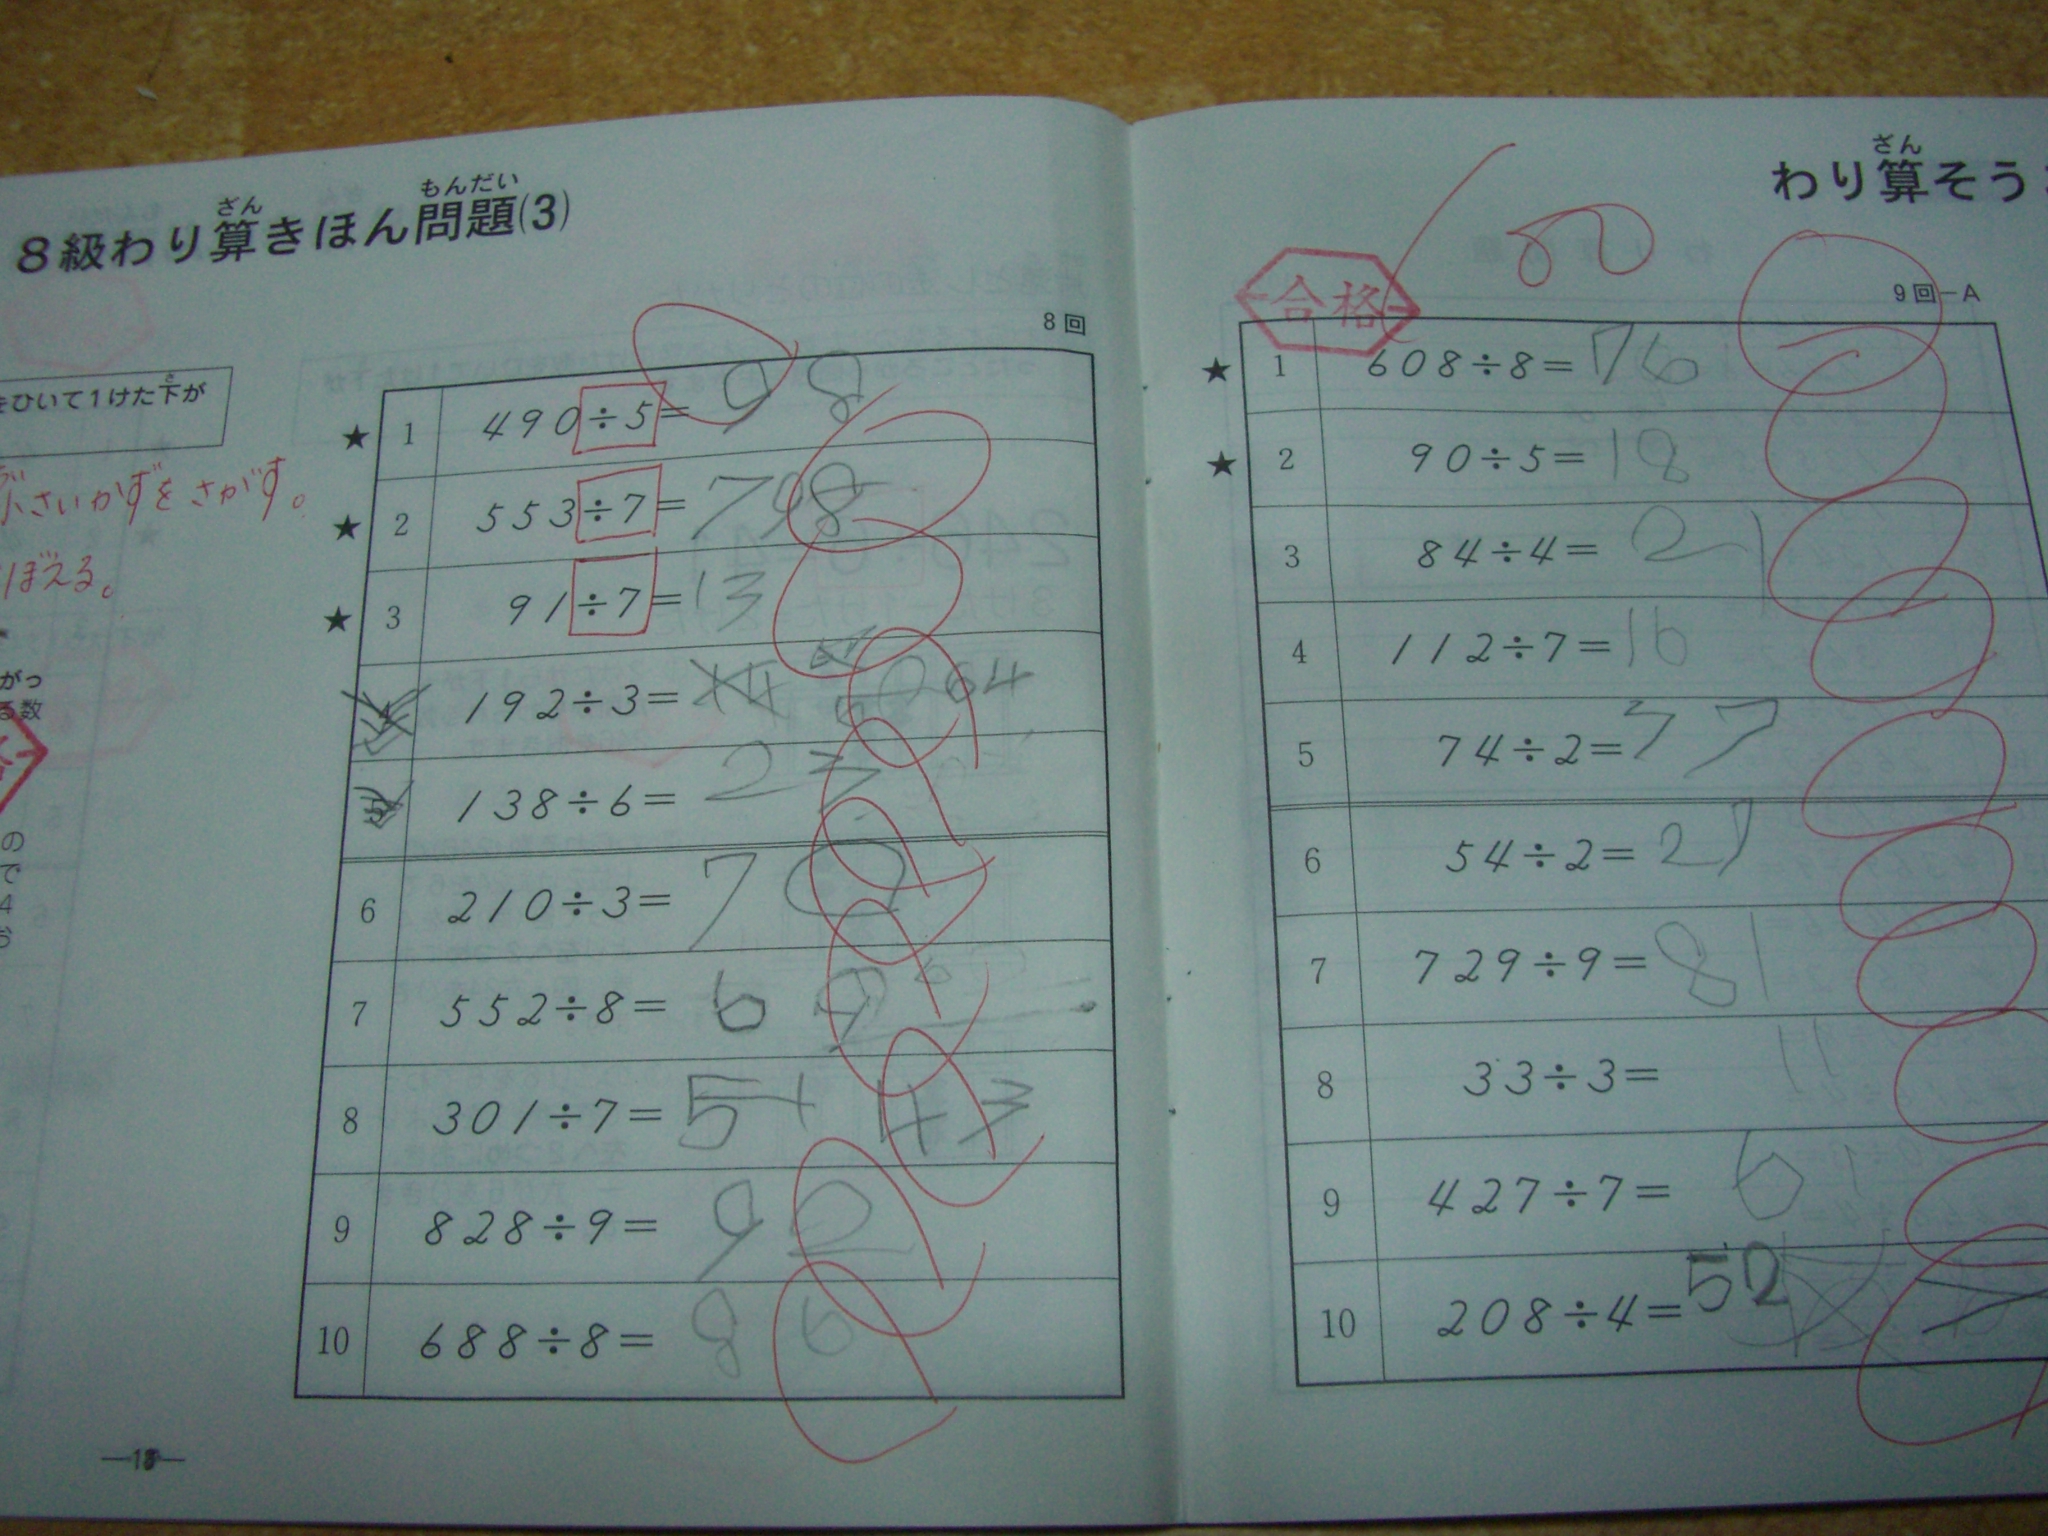 8級わり算きほん問題(3)
ざん
もんだい
8回
をひいて1けた下が
さ
小さいかずをさがす。
ぼえる。
がっ
る数
の
で
4
★ 1 490÷5= 98
★ 2 553÷7= 79
★ 3 91÷7= 13
4 192÷3= 64
5 138÷6= 23
6 210÷3= 70
7 552÷8= 69
8 301÷7= 43
9 828÷9= 92
10 688÷8= 86
わり算そう
ざん
合格
100
9回-A
★ 1 608÷8= 76
★ 2 90÷5= 18
3 84÷4= 21
4 112÷7= 16
5 74÷2= 37
6 54÷2= 27
7 729÷9= 81
8 33÷3= 11
9 427÷7= 61
10 208÷4= 52